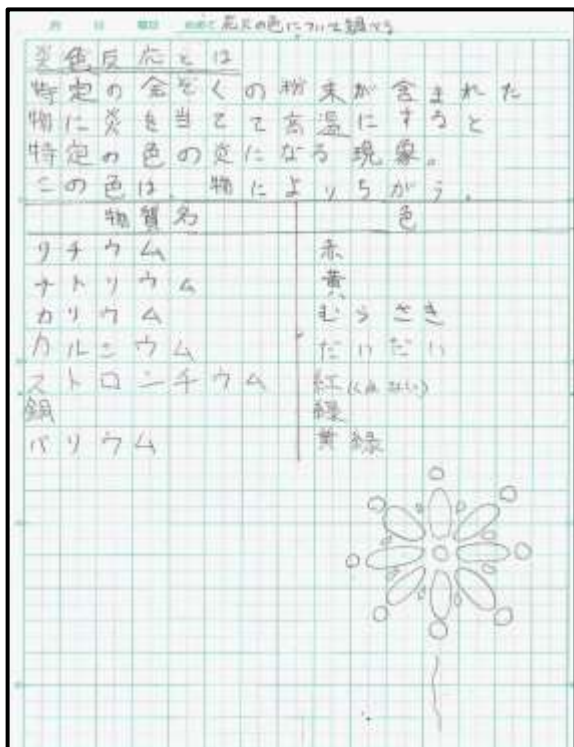 月 日 曜日 めあて 花火の色について調べる
炎色反応とは
特定の金ぞくの粉末が含まれた
物に炎を当てて高温にすると
特定の色の炎になる現象。
この色は、物によりちがう。
物質名 色
リチウム 赤
ナトリウム 黄
カリウム むらさき
カルシウム だいだい
ストロンチウム 紅(くれない)
銅 緑
バリウム 黄緑